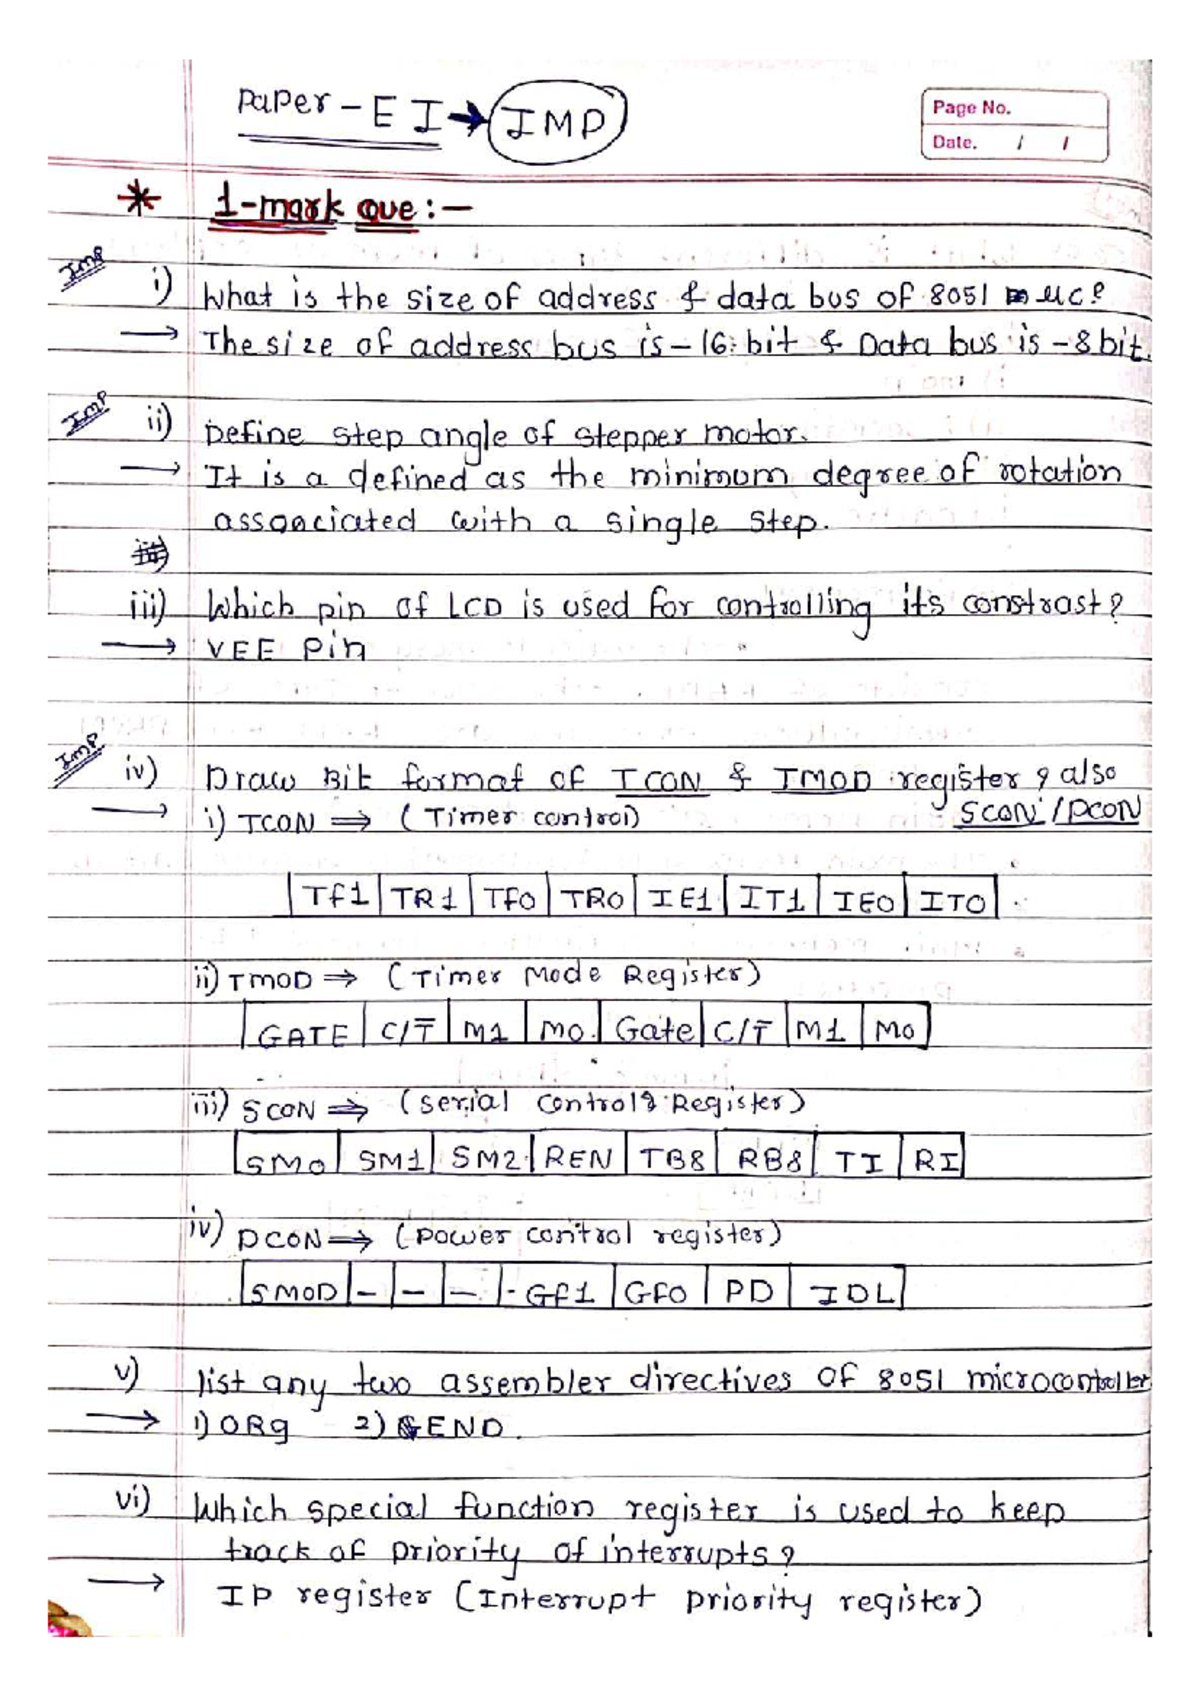 Paper - E I → IMP
Page No.
Date. / /
* 1-mark que :-
Imp i) What is the size of address & data bus of 8051 uc?
→ The size of address bus is - 16 bit & Data bus is - 8 bit.
Imp ii) Define step angle of stepper motor.
→ It is a defined as the minimum degree of rotation
assoaciated with a single step.
iii) Which pin of LCD is used for controlling its constrast?
→ VEE Pin
Imp iv) Draw Bit format of TCON & TMOD register, also
SCON / PCON
→ i) TCON ⇒ (Timer control)
Tf1 | TR1 | Tf0 | TR0 | IE1 | IT1 | IE0 | IT0
ii) TMOD ⇒ (Timer Mode Register)
GATE | C/T̅ | M1 | M0 | Gate | C/T̅ | M1 | M0
iii) SCON ⇒ (serial Control Register)
SM0 | SM1 | SM2 | REN | TB8 | RB8 | TI | RI
iv) PCON ⇒ (Power control register)
SMOD | - | - | - | Gf1 | Gf0 | PD | IDL
v) list any two assembler directives of 8051 microcontroller
→ 1) ORg 2) END.
vi) Which special function register is used to keep
track of priority of interrupts?
→ IP register (Interrupt priority register)